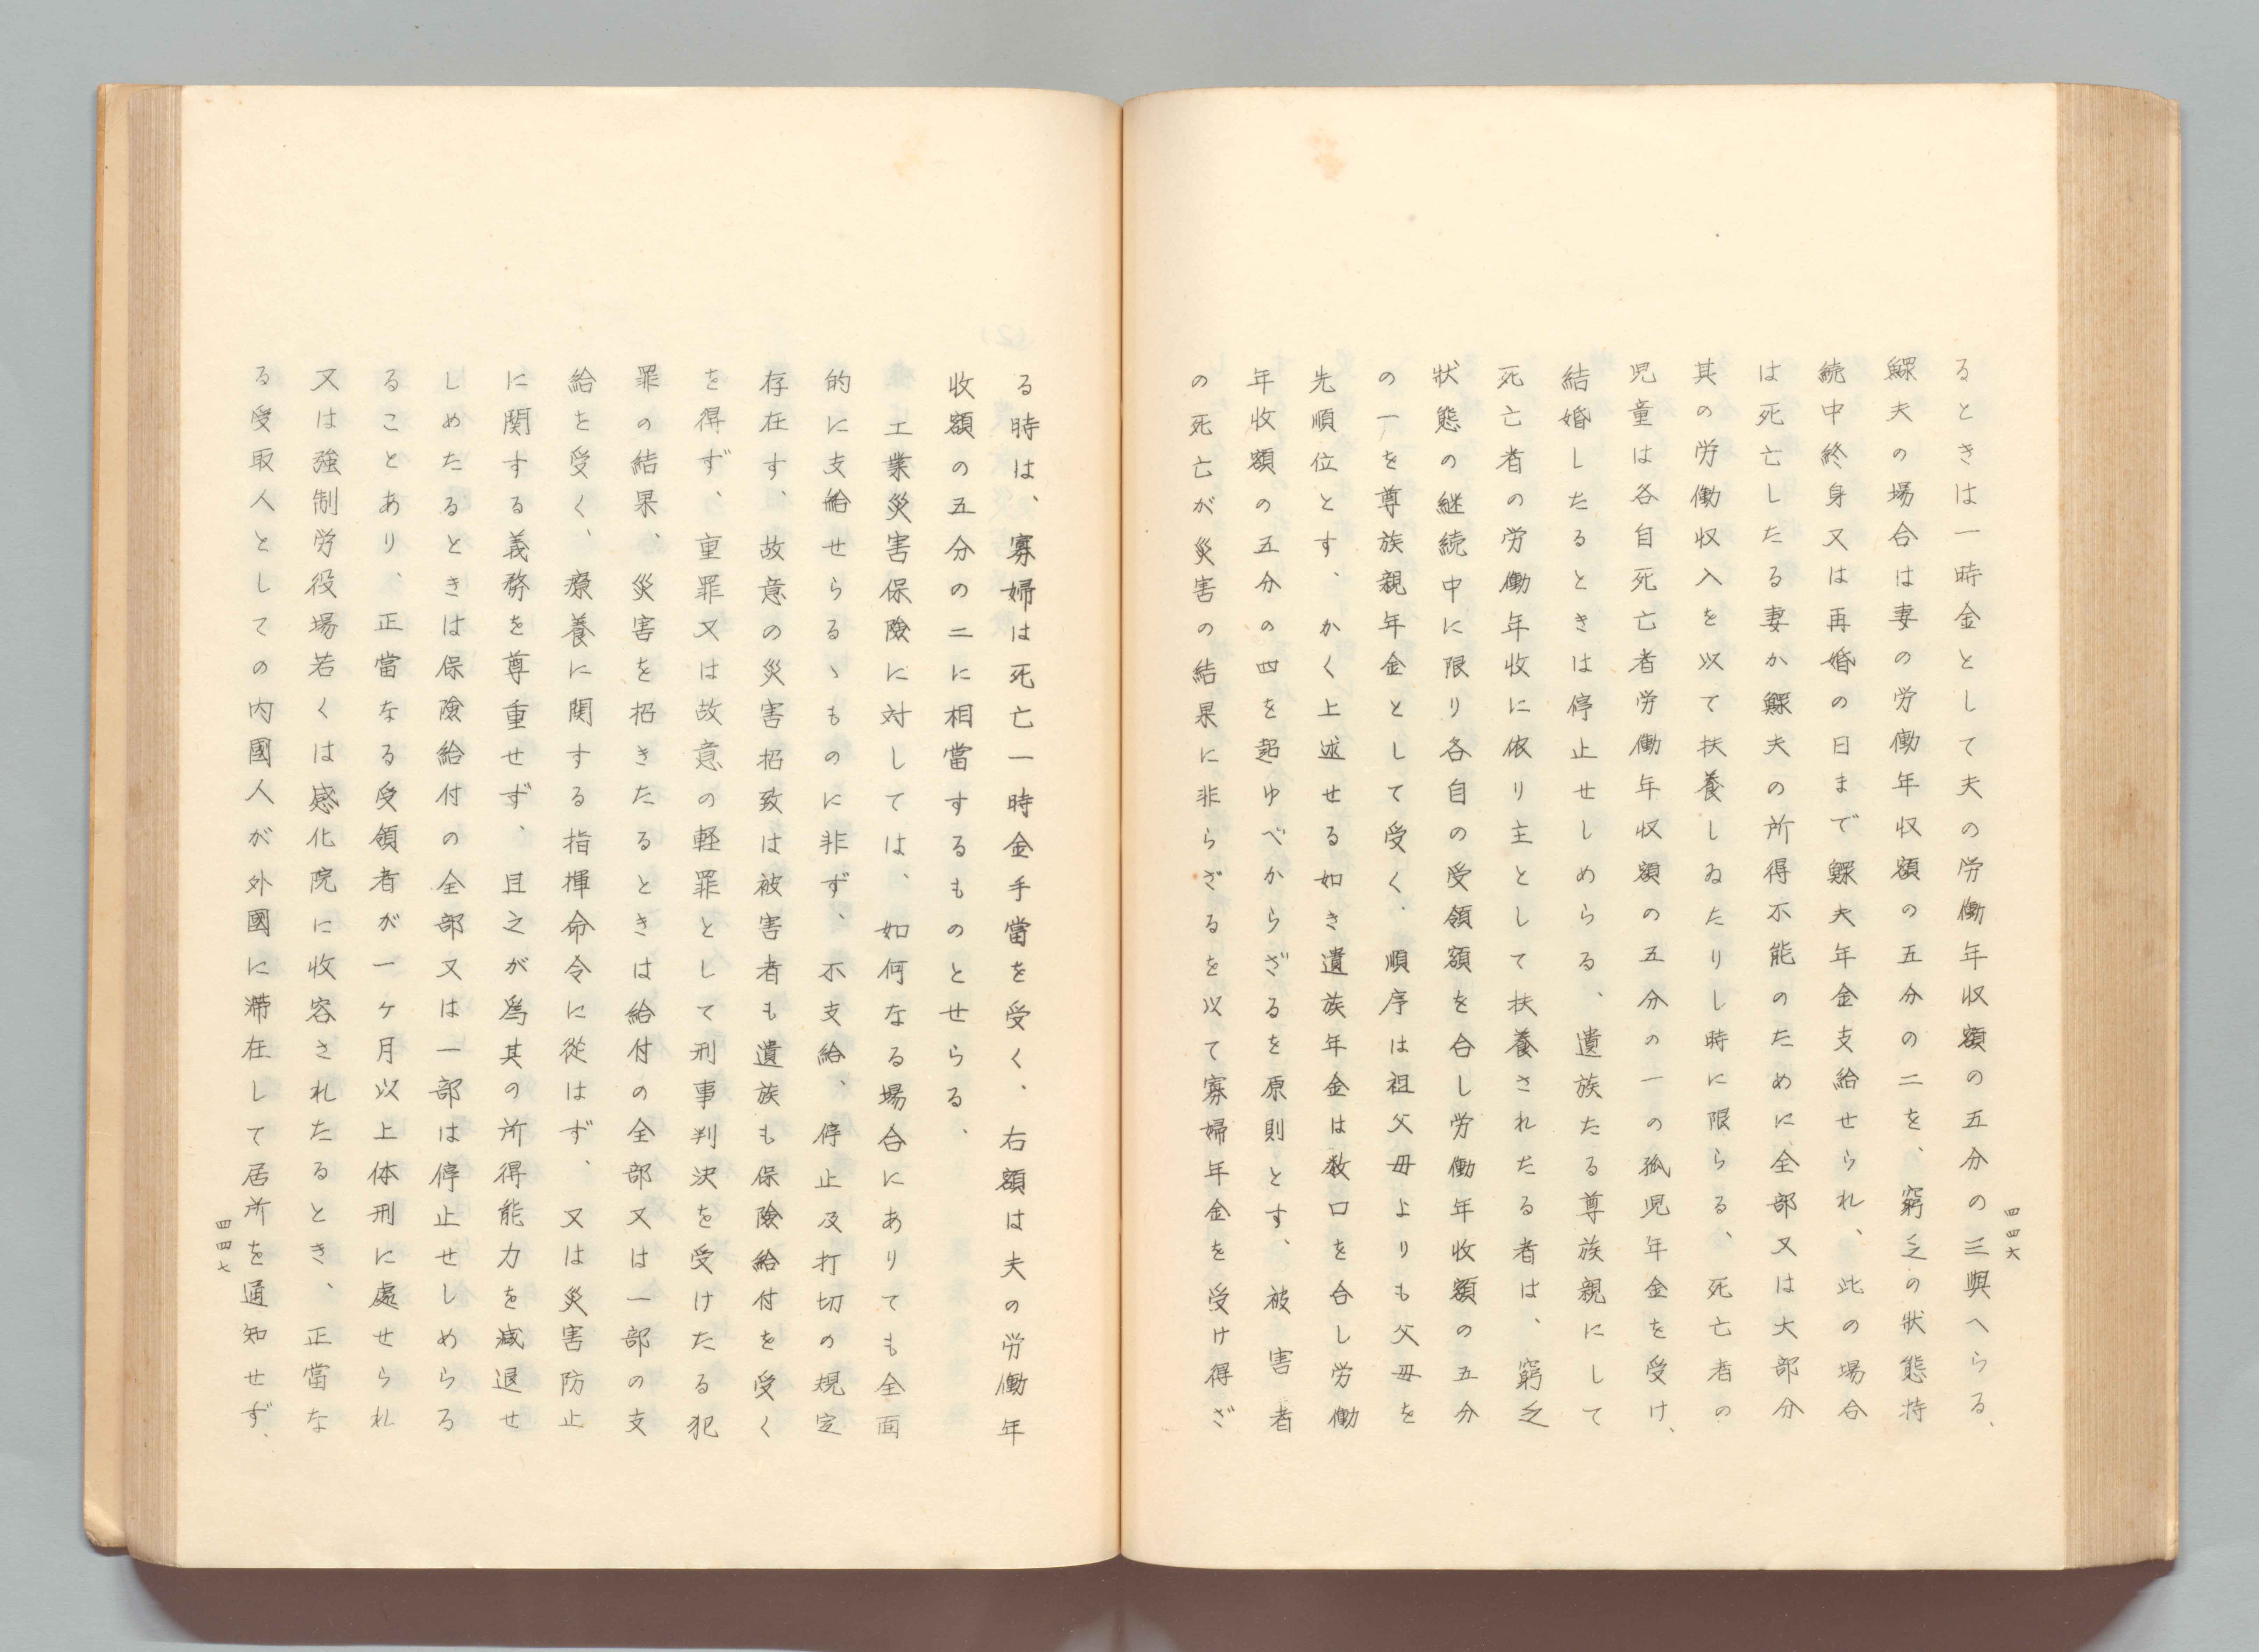 るときは一時金として夫の労働年収額の五分の三與へらる、
鰥夫の場合は妻の労働年収額の五分の二を、窮乏の状態持
続中終身又は再婚の日まで鰥夫年金支給せられ、此の場合
は死亡したる妻か鰥夫の所得不能のために全部又は大部分
其の労働収入を以て扶養しゐたりし時に限らる、死亡者の
児童は各自死亡者労働年収額の五分の一の孤児年金を受け、
結婚したるときは停止せしめらる、遺族たる尊族親にして
死亡者の労働年收に依り主として扶養されたる者は、窮乏
状態の継続中に限り各自の受領額を合し労働年收額の五分
の一を尊族親年金として受く、順序は祖父母よりも父母を
先順位とす、かく上述せる如き遺族年金は数口を合し労働
年收額の五分の四を超ゆべからざるを原則とす、被害者
の死亡が災害の結果に非らざるを以て寡婦年金を受け得ざ
四四六
る時は、寡婦は死亡一時金手當を受く、右額は夫の労働年
收額の五分の二に相當するものとせらる、
工業災害保險に対しては、如何なる場合にありても全面
的に支給せらるゝものに非ず、不支給、停止及打切の規定
存在す、故意の災害招致は被害者も遺族も保險給付を受く
を得ず、重罪又は故意の軽罪として刑事判決を受けたる犯
罪の結果、災害を招きたるときは給付の全部又は一部の支
給を受く、療養に関する指揮命令に從はず、又は災害防止
に関する義務を尊重せず、且之が爲其の所得能力を減退せ
しめたるときは保險給付の全部又は一部は停止せしめらる
ることあり、正當なる受領者が一ヶ月以上体刑に處せられ
又は強制労役場若くは感化院に收容されたるとき、正當な
る受取人としての内國人が外國に滞在して居所を通知せず、
四四七